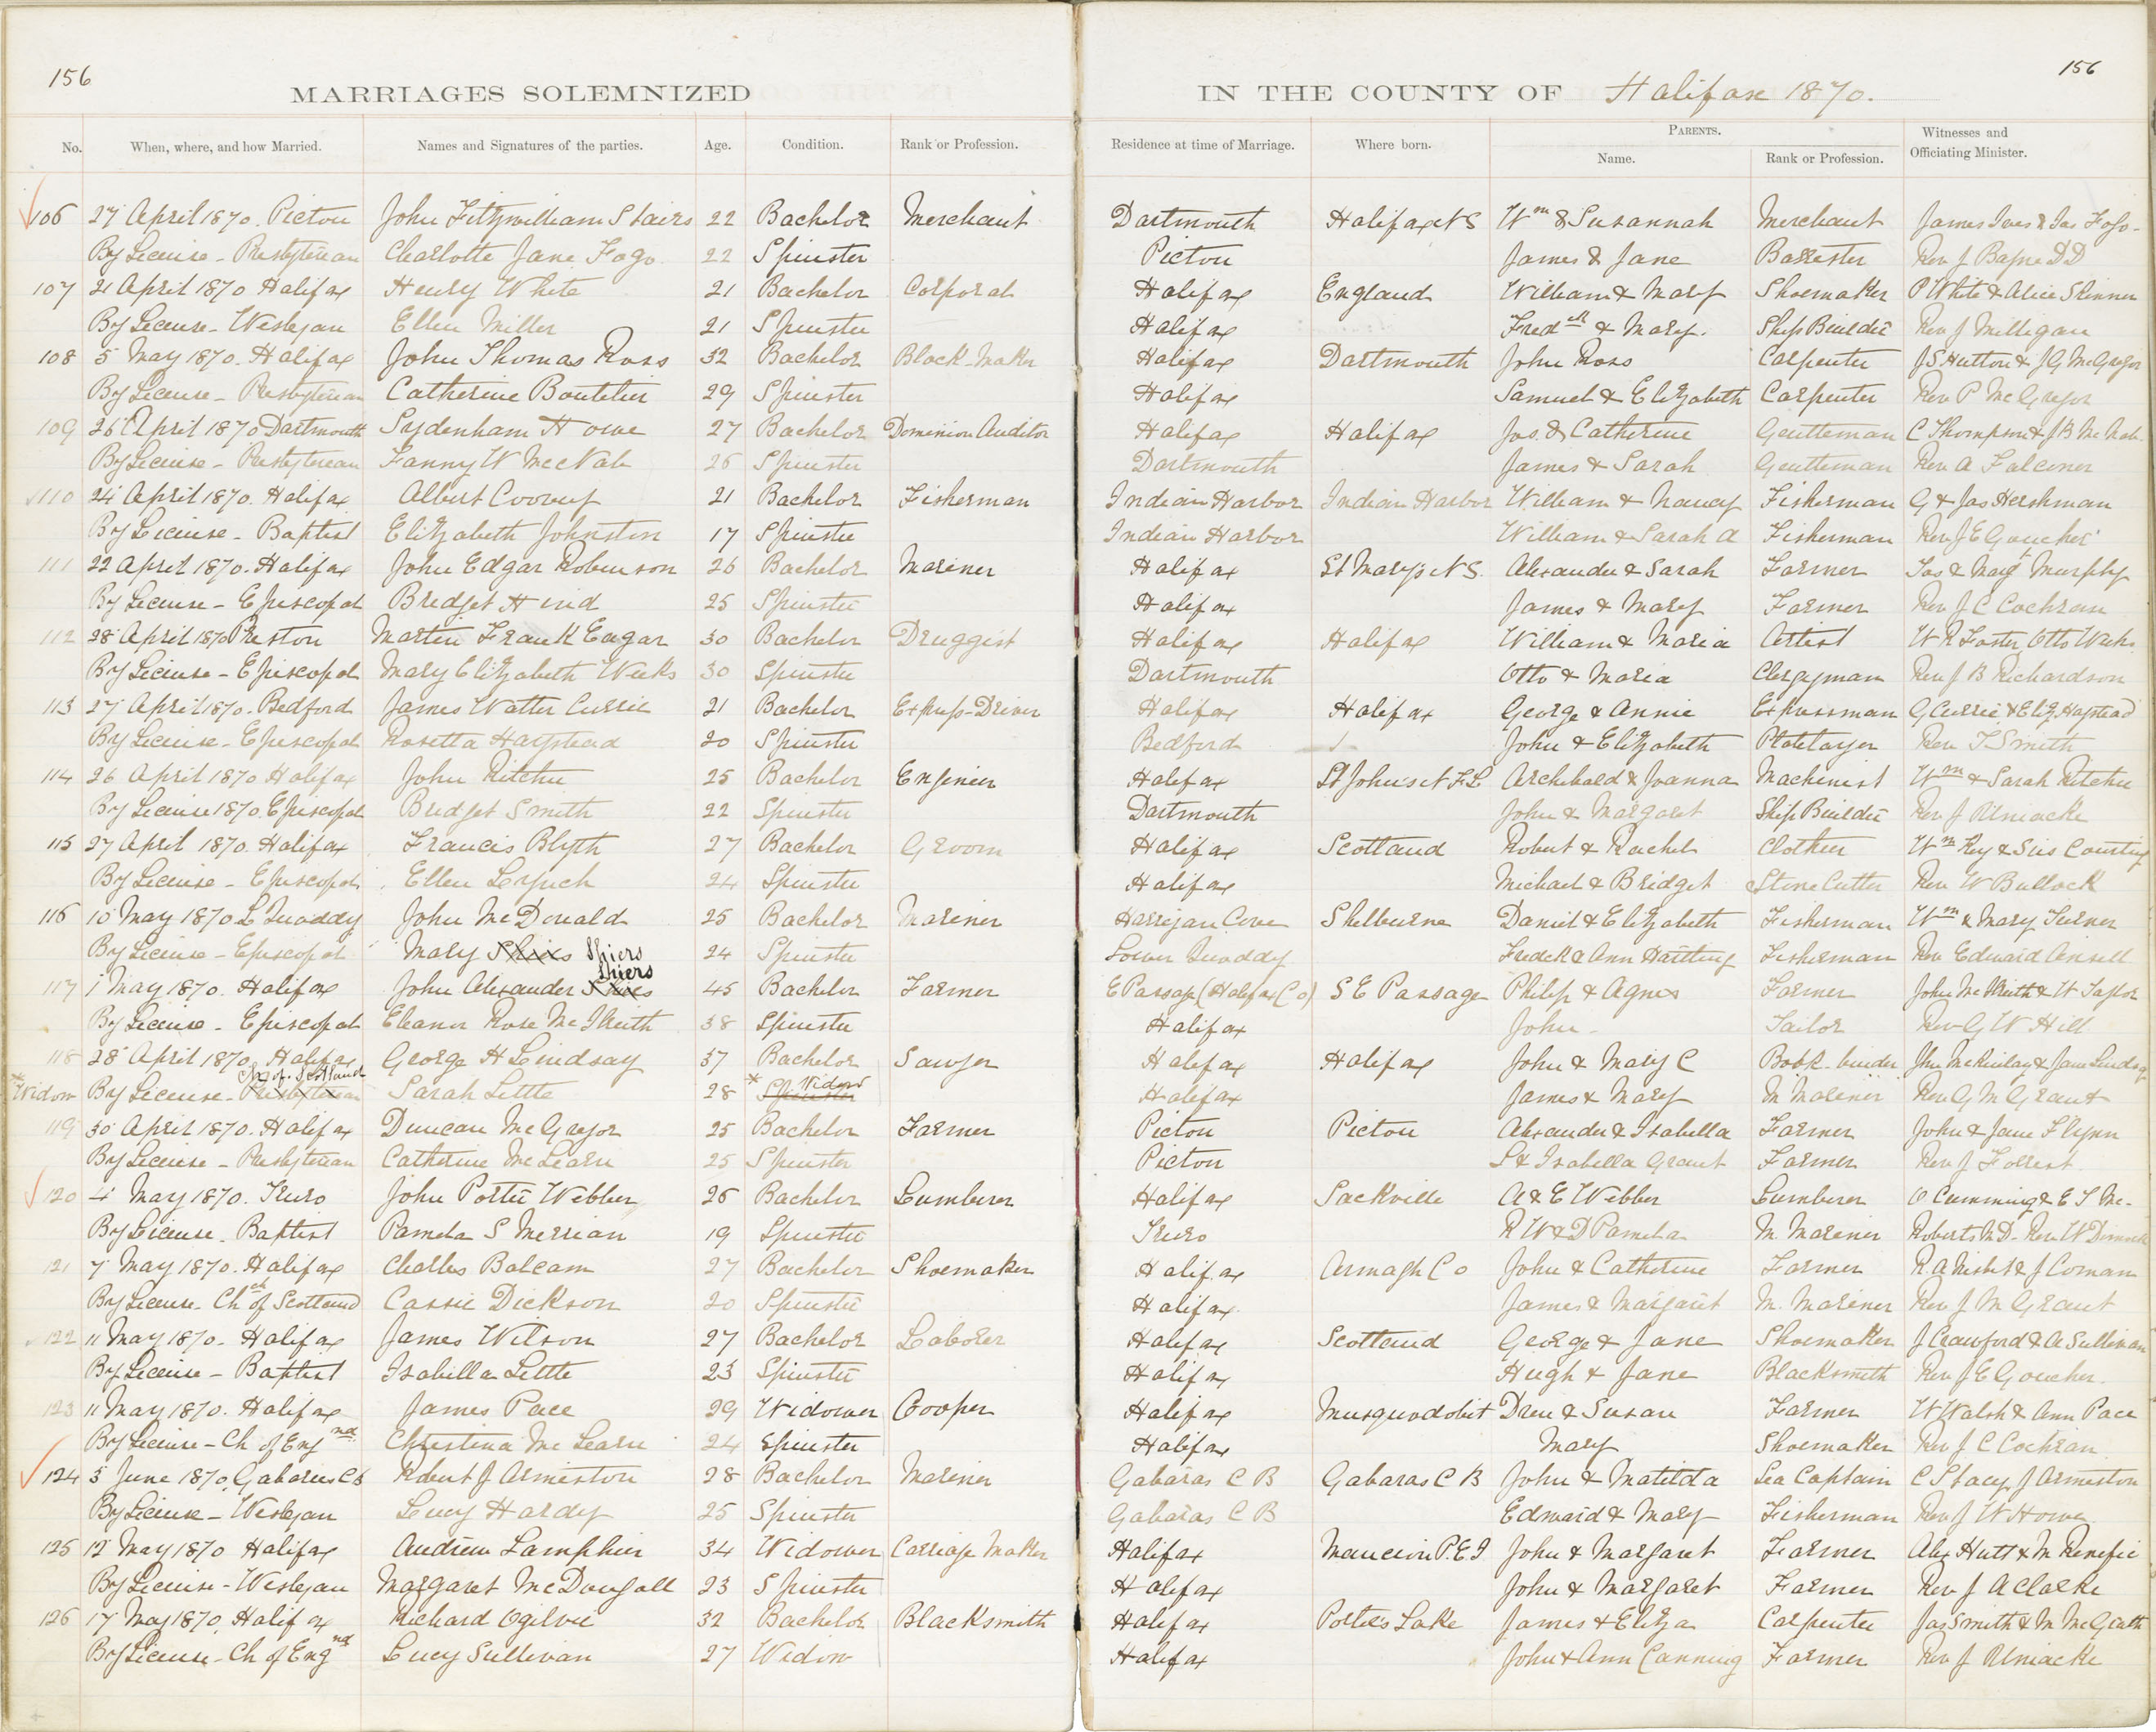 156
156
MARRIAGES SOLEMNIZED IN THE COUNTY OF Halifax 1870.
No. When, where, and how Married. Names and Signatures of the parties. Age. Condition. Rank or Profession. Residence at time of Marriage. Where born. PARENTS. Name. Rank or Profession. Witnesses and Officiating Minister.
106 27 April 1870. Pictou John Fitzwilliam Stairs 22 Bachelor Merchant Dartmouth Halifax N S Wm & Susannah Merchant James Ives & Jas Fogo
By License - Presbyterian Charlotte Jane Fogo 22 Spinster Pictou James & Jane Barrester Rev J Bayne DD
107 21 April 1870 Halifax Henry White 21 Bachelor Corporal Halifax England William & Mary Shoemaker P White & Alice Skinner
By License - Weslejan Ellen Miller 21 Spinster Halifax Fredck & Mary. Ship Builder Rev J Milligan
108 5 May 1870. Halifax John Thomas Ross 32 Bachelor Block-Maker Halifax Dartmouth John Ross Carpenter J S Hutton & J G McGregor
By License - Presbyterian Catherine Boutelier 29 Spinster Halifax Samuel & Elizabeth Carpenter Rev P McGregor
109 26 April 1870 Dartmouth Sydenham Howe 27 Bachelor Dominion Auditor Halifax Halifax Jos. & Catherine Gentleman C Thompson & J B McNab
By License - Presbyterean Fanny W McNab 26 Spinster Dartmouth James & Sarah Gentleman Rev A Falconer
110 24 April 1870. Halifax Albert Coovey 21 Bachelor Fisherman Indian Harbor Indian Harbor William & Nancy Fisherman G & Jas Hershman
By License - Baptist Elizabeth Johnston 17 Spinster Indian Harbor William & Sarah A Fisherman Rev J E Goucher
111 22 April 1870. Halifax John Edgar Robinson 26 Bachelor Mariner Halifax St Mary's N S. Alexander & Sarah Farmer Jas & Marg Murphy
By License - Episcopal Bridget Hind 25 Spinster Halifax James & Mary Farmer Rev J C Cochran
112 28 April 1870 Preston Martin Frank Eagar 30 Bachelor Druggist Halifax Halifax William & Maria Artist W R Foster Otto Weeks
By License - Episcopal Mary Elizabeth Weeks 30 Spinster Dartmouth Otto & Maria Clergyman Rev J B Richardson
113 27 April 1870. Bedford James Walter Currie 21 Bachelor Express-Driver Halifax Halifax George & Annie Expressman G Currie & Eliz. Hapstead
By License - Episcopal Rosetta Hapstead 20 Spinster Bedford John & Elizabeth Platelayer Rev T Smith
114 26 April 1870 Halifax John Ritchie 25 Bachelor Engineer Halifax St John's N F L Archibald & Joanna Machinist Wm & Sarah Ritchie
By License 1870. Episcopal Bridget Smith 22 Spinster Dartmouth John & Margaret Ship Builder Rev J Uniacke
115 27 April 1870. Halifax Francis Blyth 27 Bachelor Groom Halifax Scotland Robert & Rachel Clothier Wm Key &
By License - Episcopal Ellen Leynch 24 Spinster Halifax Michael & Bridget Stone Cutter Rev W Bullock
116 10 May 1870 L Quoddy John McDonald 25 Bachelor Mariner Harrijan Cove Shelburne Daniel & Elizabeth Fisherman Wm & Mary Turner
By License - Episcopal Mary Shiers 24 Spinster Lower Quoddy Fredck & Ann Hartling Fisherman Rev Edward Ansell
117 1 May 1870. Halifax John Alexander Shiers 45 Bachelor Farmer E Passage (Halifax Co) S E Passage Philip & Agnes Farmer John McIlreith & W Taylor
By License - Episcopal Eleanor Rose McIlreith 38 Spinster Halifax John - Tailor Rev G W Hill
118 28 April 1870 Halifax George H Lindsay 37 Bachelor Sawyer Halifax Halifax John & Mary C Book-binder Jhn McKinlay & Jane Lindsay
* Widow By License - Presbyterian Ch. of Scotland Sarah Little 28 * Spinster Widow Halifax James & Mary M Mariner Rev G M Grant
119 30 April 1870. Halifax Duncan McGregor 25 Bachelor Farmer Pictou Pictou Alexander & Isabella Farmer John & Jane Flynn
By License - Presbyterian Catherine McLearn 25 Spinster Pictou & Isabella Grant Farmer Rev J Forrest
120 4 May 1870. Truro John Porter Webber 26 Bachelor Lumberer Halifax Sackville A & E Webber Lumberer O Cumming & E T Mc-
By License - Baptist Pamela S Merrian 19 Spinster Truro R W & D Pamela M. Mariner Roberts M.D. Rev W Dimock
121 7 May 1870. Halifax Charles Balcam 27 Bachelor Shoemaker Halifax Armagh Co John & Catherine Farmer R A Nisbet & J Coman
By License - Ch of Scotland Cassie Dickson 20 Spinster Halifax James & Margaret M. Mariner Rev J M Grant
122 11 May 1870 - Halifax James Wilson 27 Bachelor Laborer Halifax Scotland George & Jane Shoemaker J Crawford & A Sullivan
By License - Baptist Isabella Little 23 Spinster Halifax Hugh & Jane Blacksmith Rev J E Goucher.
123 11 May 1870. Halifax James Pace 29 Widower Cooper Halifax Musquodobit Drew & Susan Farmer W Walsh & Ann Pace
By License - Ch of Engnd Christina McLearn 24 Spinster Halifax Mary Shoemaker Rev J C Cochran
124 5 June 1870, Gabarus C B Robert J Armiston 28 Bachelor Mariner Gabaras C B Gabaras C B John & Matilda Sea Captain C Stacy J Armiston
By License - Weslejan Lucy Hardy 25 Spinster Gabaras C B Edward & Mary Fisherman Rev J W Howe
125 12 May 1870 Halifax Andrew Lamphier 34 Widower Carriage Maker Halifax P.E.I John & Margaret Farmer Alex Hutt & M
By License - Weslejan Margaret McDougall 23 Spinster Halifax John & Margaret Farmer Rev J A Clarke
126 17 May 1870, Halifax Richard Ogilvie 32 Bachelor Blacksmith Halifax Porter's Lake James & Eliza Carpenter Jas Smith & M McGrath
By License - Ch of Engnd Lucy Sullivan 27 Widow Halifax John & Ann Canning Farmer Rev J Uniacke